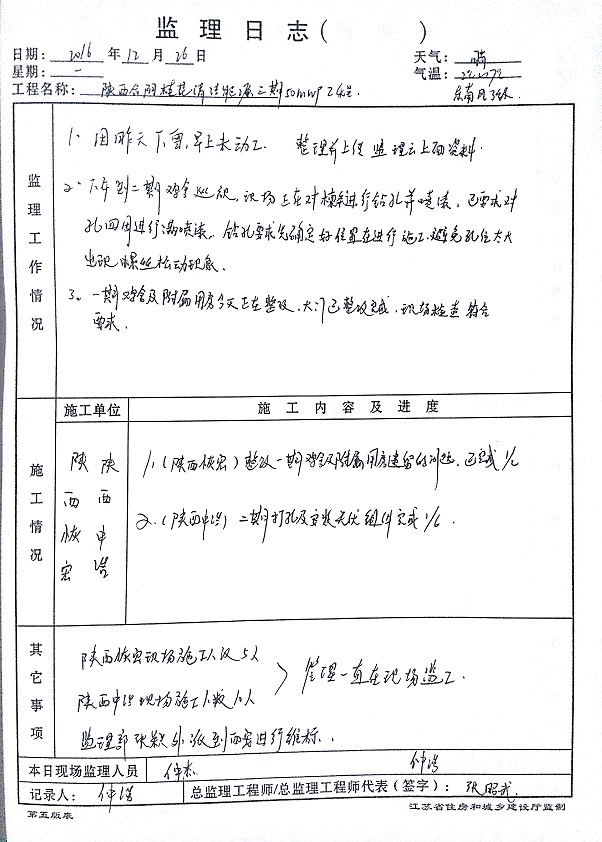 监 理 日 志 （ ）
日期： 2016 年 12 月 26 日 天气： 晴
星期： 一 气温：
工程名称： 陕西合阳 清洁能源二期50MWP 东南风3级
监理工作情况
1、因昨天下雪，早上未动工 整理并上传监理云上面资料．
2、下午到二期鸡舍巡视，现场正在对檩条进行钻孔并喷漆，已要求对
孔四周进行满喷漆，钻孔要求先确定好位置在进行施工，避免孔位太大
出现螺丝松动现象．
3、一期鸡舍及附属用房今天正在整改，大门已整改完成，现场检查符合
要求．
施工情况
施工单位 施 工 内 容 及 进 度
陕西恢宏
陕西中
1、（陕西恢宏）整改一期鸡舍及附属用房遗留的问题，已完成1/2
2、（陕西中 ）二期打孔及安装光伏组件完成1/6．
其它事项
陕西恢宏现场施工人员5人
陕西中 现场施工人数10人 > 管理一直在现场监工．
监理部张颖外派到西安进行维标．
本日现场监理人员 仲杰 仲浩
记录人： 仲浩 总监理工程师/总监理工程师代表（签字）： 张昭武
第五版表 江苏省住房和城乡建设厅监制